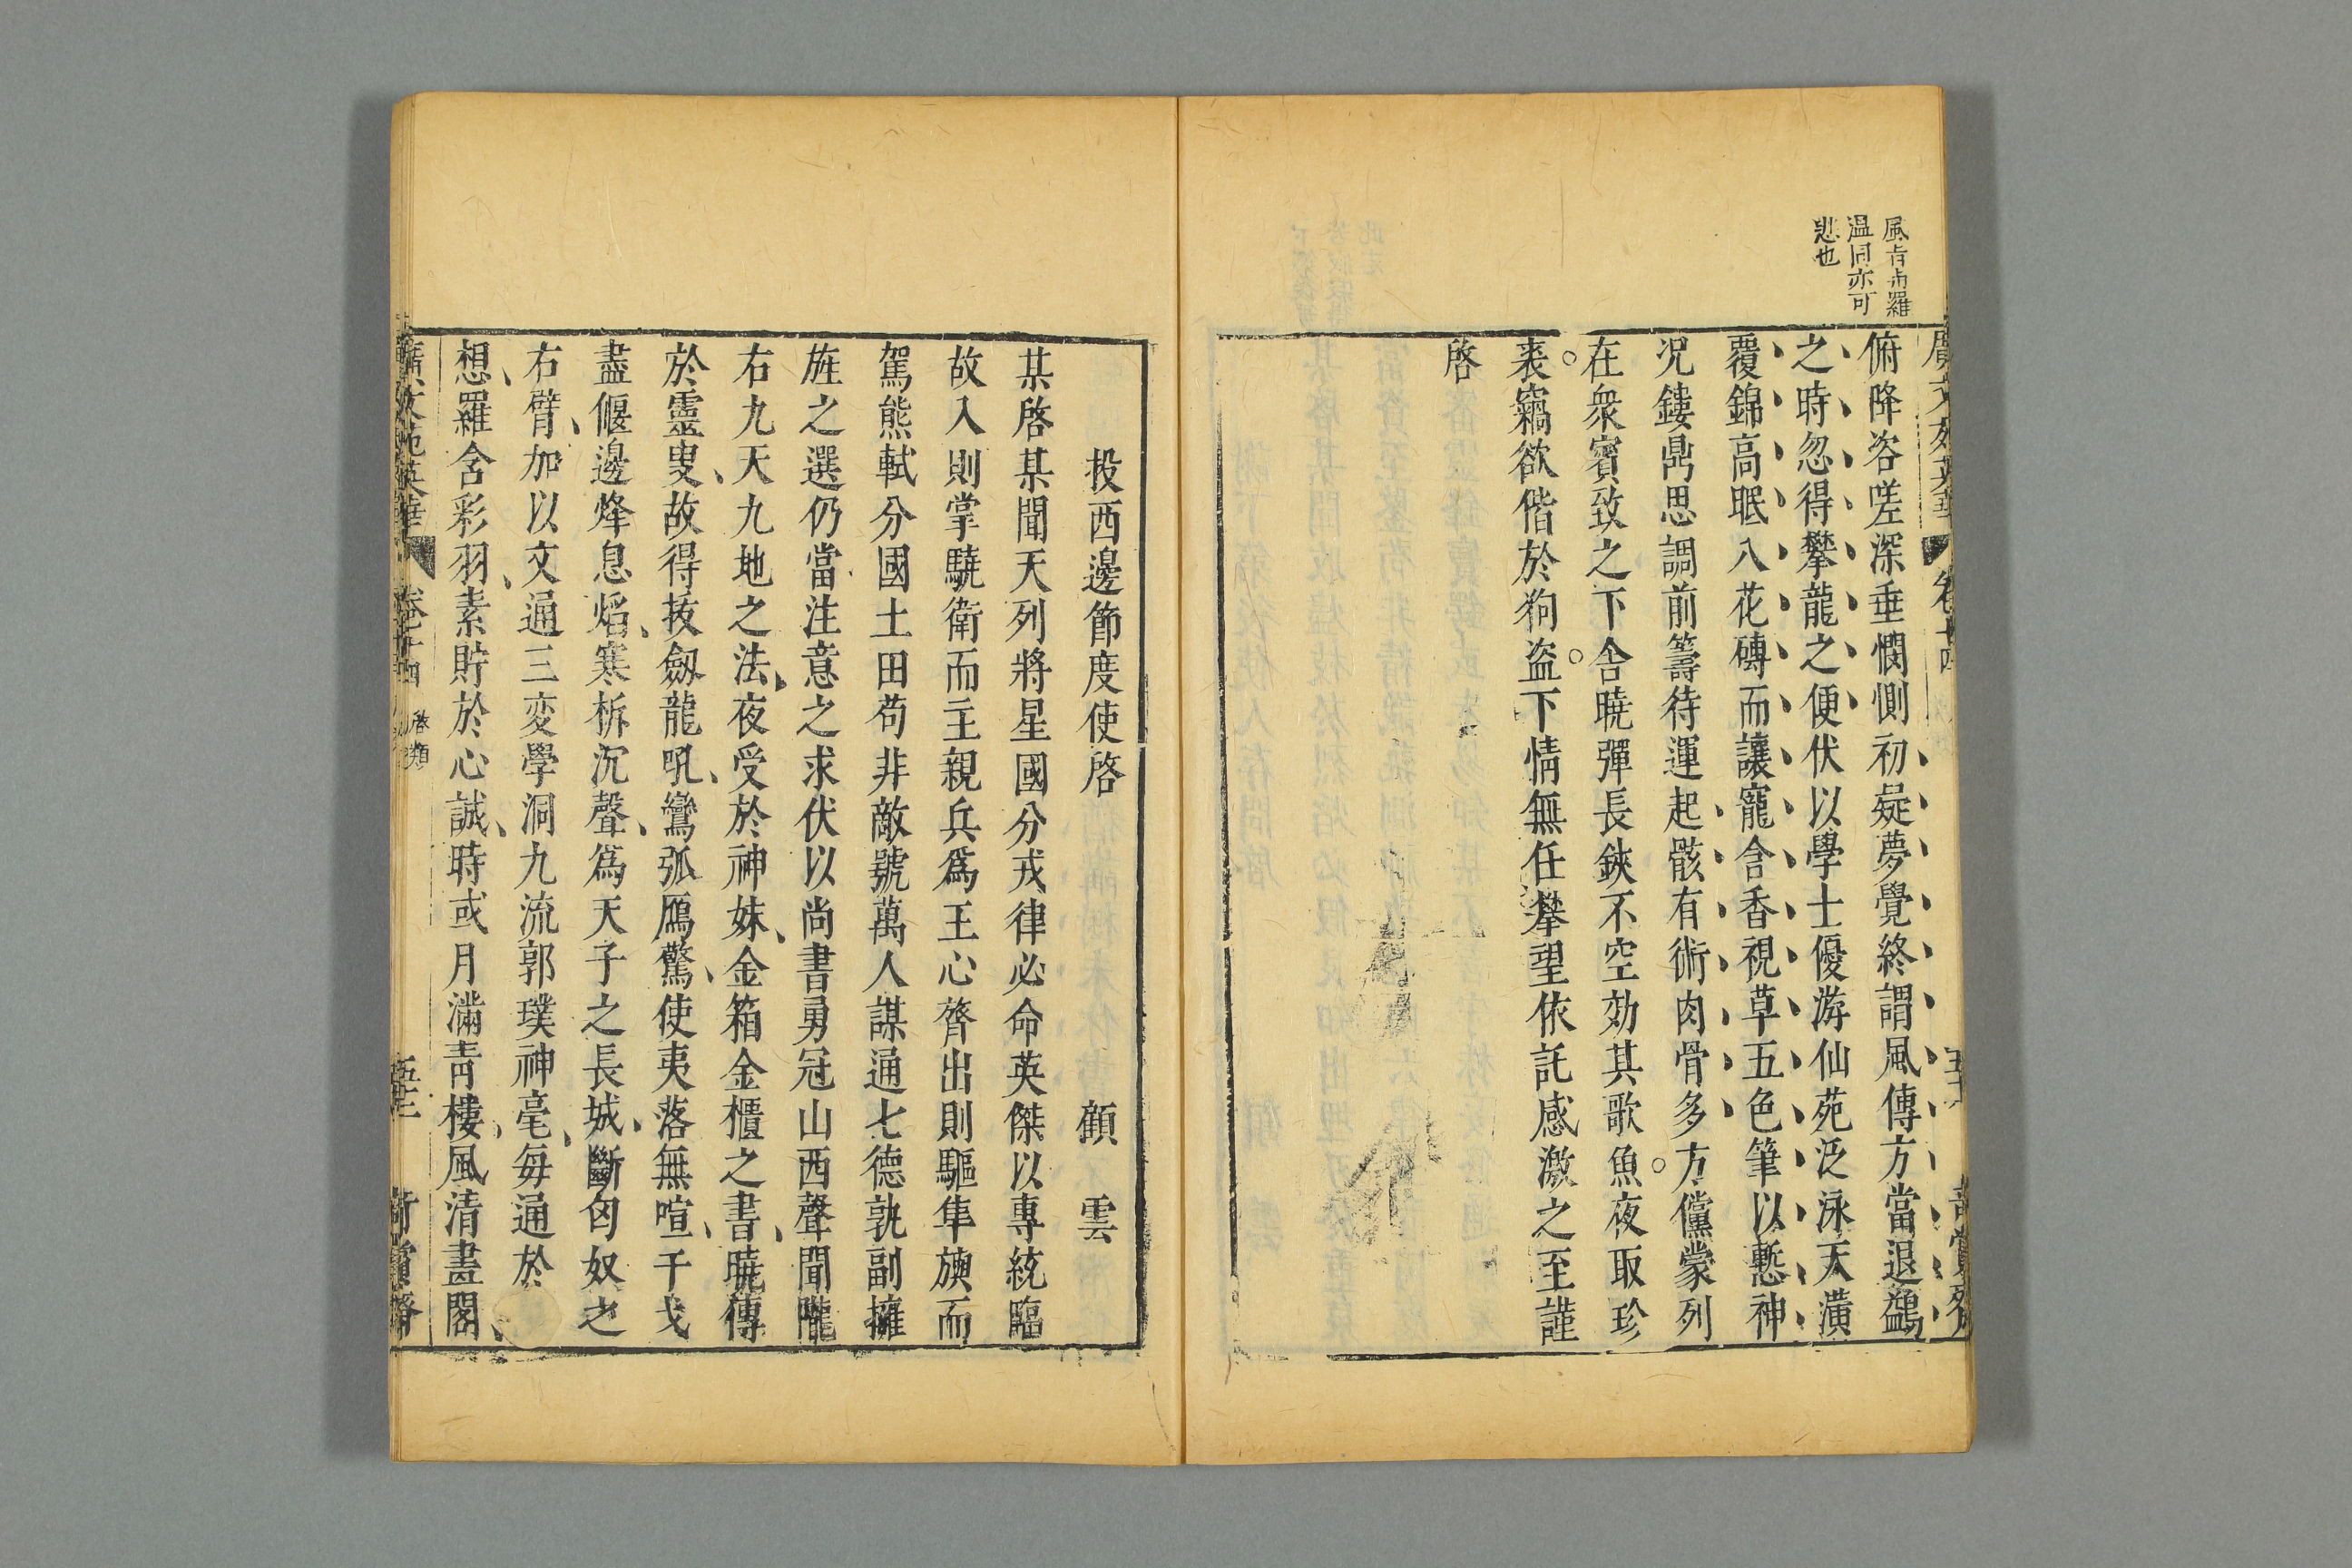 溫同亦可
悲也
俯降咨嗟深垂憫惻初疑夢覺終謂風傳方當退鷁
之時忽得攀龍之便伏以學士優游仙苑泛泳天潢
覆錦高眠入花磚而讓寵含香視草五色筆以慙神
况鏤鼎思調前籌待運起骸有術肉骨多方儻蒙列
在衆賓致之下舍曉彈長鋏不空効其歌魚夜取珍
裘竊欲偕於狗盜下情無任攀望依託感激之至謹
啓
投西邊節度使啓 顧雲
某啓某聞天列將星國分戎律必命英傑以專統臨
故入則掌驍衛而主親兵爲王心膂出則驅隼旟而
駕熊軾分國土田苟非敵號萬人謀通七德孰副擁
旌之選仍當注意之求伏以尚書勇冠山西聲聞隴
右九天九地之法夜受於神妹金箱金櫃之書曉傳
於靈叟故得拔劔龍吼彎弧鴈驚使夷落無喧干戈
盡偃邊烽息焰寒柝沉聲爲天子之長城斷匈奴之
右臂加以文通三変學洞九流郭璞神毫每通於
想羅含彩羽素貯於心誠時或月滿青樓風清畫閣
廣文苑英華 卷十四 啓類